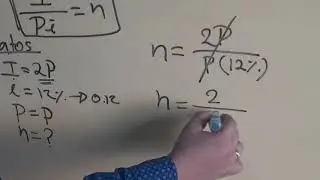 I/Pi = n
atos
I = 2P
i = 12% → 0.12
P = P
n = ?
n = 2P/P(12%)
n = 2